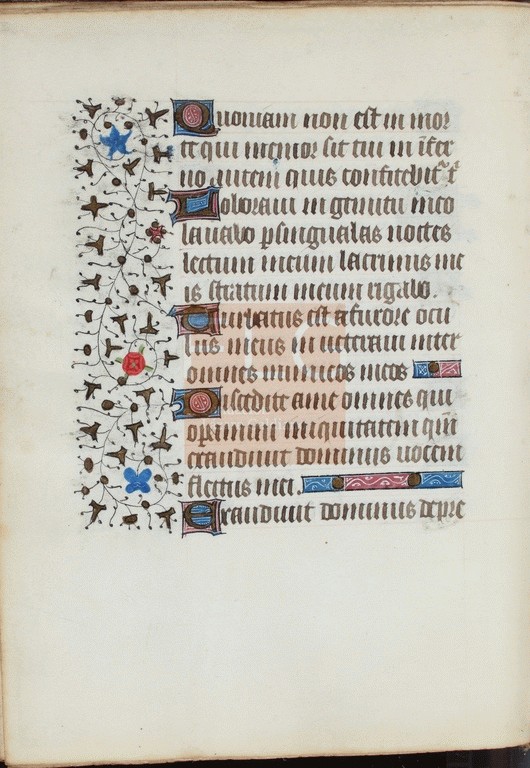 Quoniam non est in mor
te qui memor sit tui in ĩfer
no autem quis confitebit̃ t̃
Laboraui in gemitu meo
lauabo p singulas noctes
lectum meum lacrimis me
is stratum meum rigabo.
Turbatus est a furore ocu
lus meus inueteraui inter
omnes inimicos meos
Discedite a me omnes qui
operamini iniquitatem qm̃
exaudiuit dominus uocem
fletus mei.
Exaudiuit dominus depre